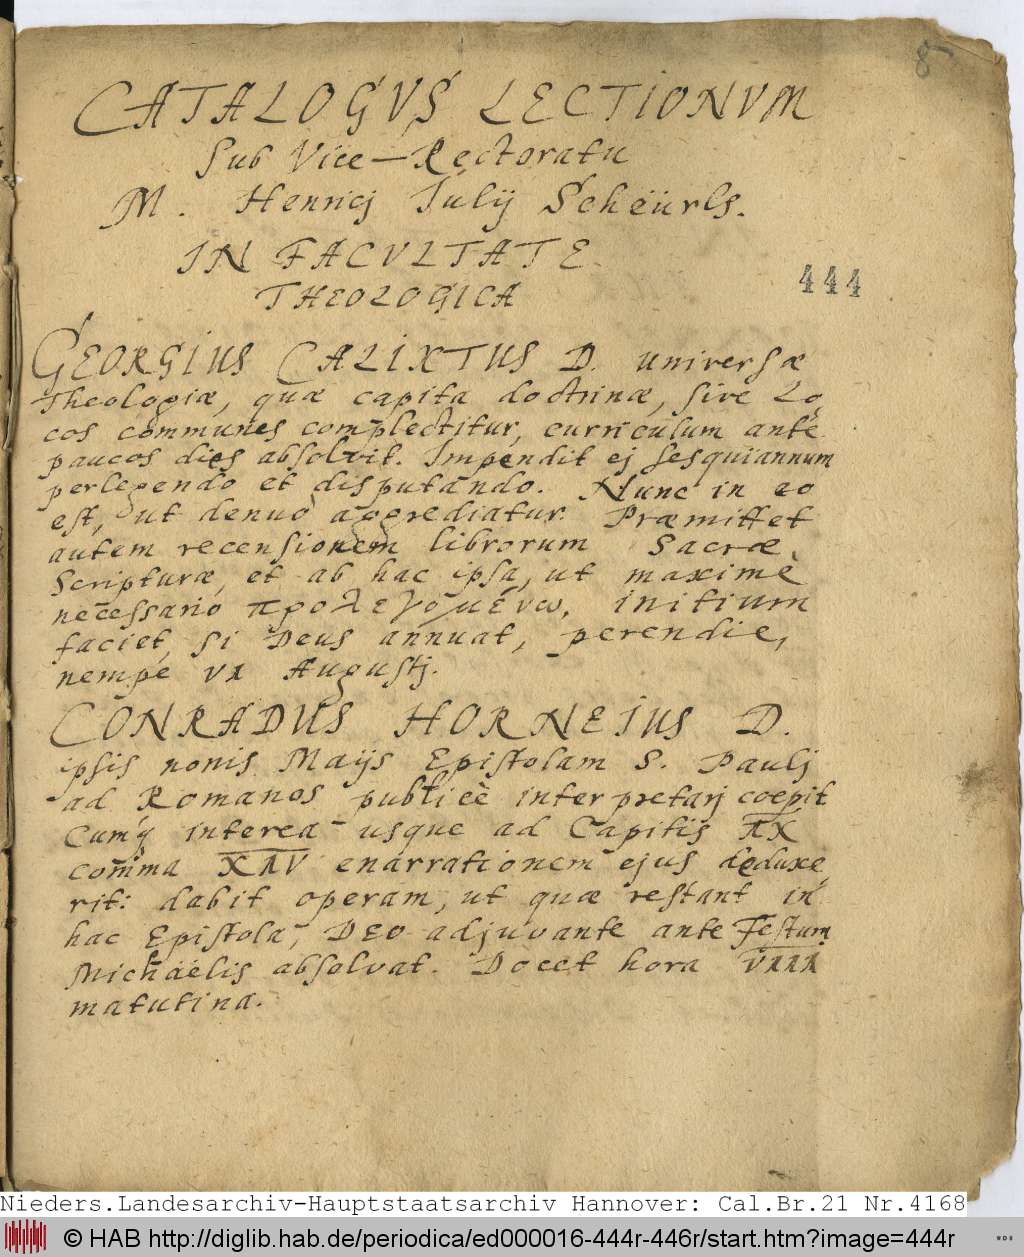 8
CATALOGVS LECTIONVM
Sub Vice-Rectoratu
M. Henricj Iulij Scheürls.
IN FACVLTATE
THEOLOGICA
444
GEORGIUS CALIXTUS D. universæ
Theologiæ, quæ capita doctrinæ, sive Lo
cos communes complectitur, curriculum ante
paucos dies absolvit. Impendit ej sesquiannum
perlegendo et disputando. Nunc in eo
est, ut denuo aggrediatur. Præmittet
autem recensionem librorum Sacræ
Scripturæ, et ab hac ipsa, ut maxime
necessario προλεγομένω, initium
faciet, si Deus annuat, perendie,
nempe VI Augustj.
CONRADUS HORNEIUS D.
ipsis nonis Maijs Epistolam S. Paulj
ad Romanos publicè interpretarj coepit
Cumq interea usque ad Capitis IX
comma XIV enarrationem ejus deduxe
rit: dabit operam, ut quæ restant in
hac Epistola, DEO adjuvante ante Festum
Michaëlis absolvat. Docet hora VIII
matutina.
Nieders.Landesarchiv-Hauptstaatsarchiv Hannover: Cal.Br.21 Nr.4168
© HAB http://diglib.hab.de/periodica/ed000016-444r-446r/start.htm?image=444r